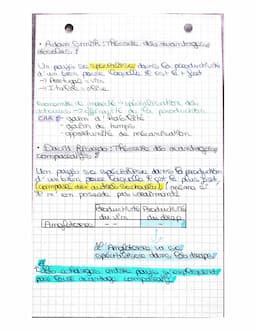 • Adam Smith : Théorie des avantages
absolus :
Un pays se spécialise dans la productivité
d'un bien pour laquelle il est le + fort
→ Portugal = vin
→ Italie = olive
Economie d'échelle → spécialisation des
→ efficacité de la production
CAR : - gain d'habileté
- gain de temps
- opportunité de mécanisation
• David Ricardo : Théorie des avantages
comparatifs :
Un pays se spécialise dans la production
d'un bien pour laquelle il est le plus fort,
comparé aux autres secteurs, (même s'il
n'en possède pas
Productivité Productivité
du vin du drap
Angleterre -- -
L'Angleterre va se
spécialiser dans le drap
échanges entre pays
avantage comparatif